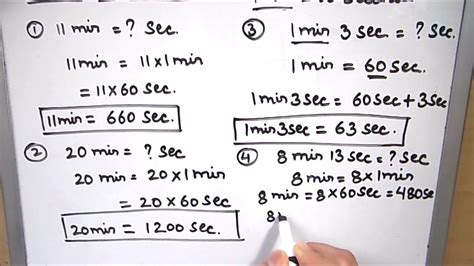 ① 11 min = ? Sec.
11min = 11×1min
= 11×60 Sec.
11min = 660 Sec.
② 20 min = ? Sec
20 min = 20×1min
= 20×60 Sec
20min = 1200 Sec.
③ 1 min 3 Sec = ? Sec.
1 min = 60 Sec.
1min 3 Sec = 60Sec + 3Sec
1min 3Sec = 63 Sec.
④ 8 min 13 Sec = ? Sec.
8 min = 8×1min
8 min = 8×60 Sec = 480Se
8